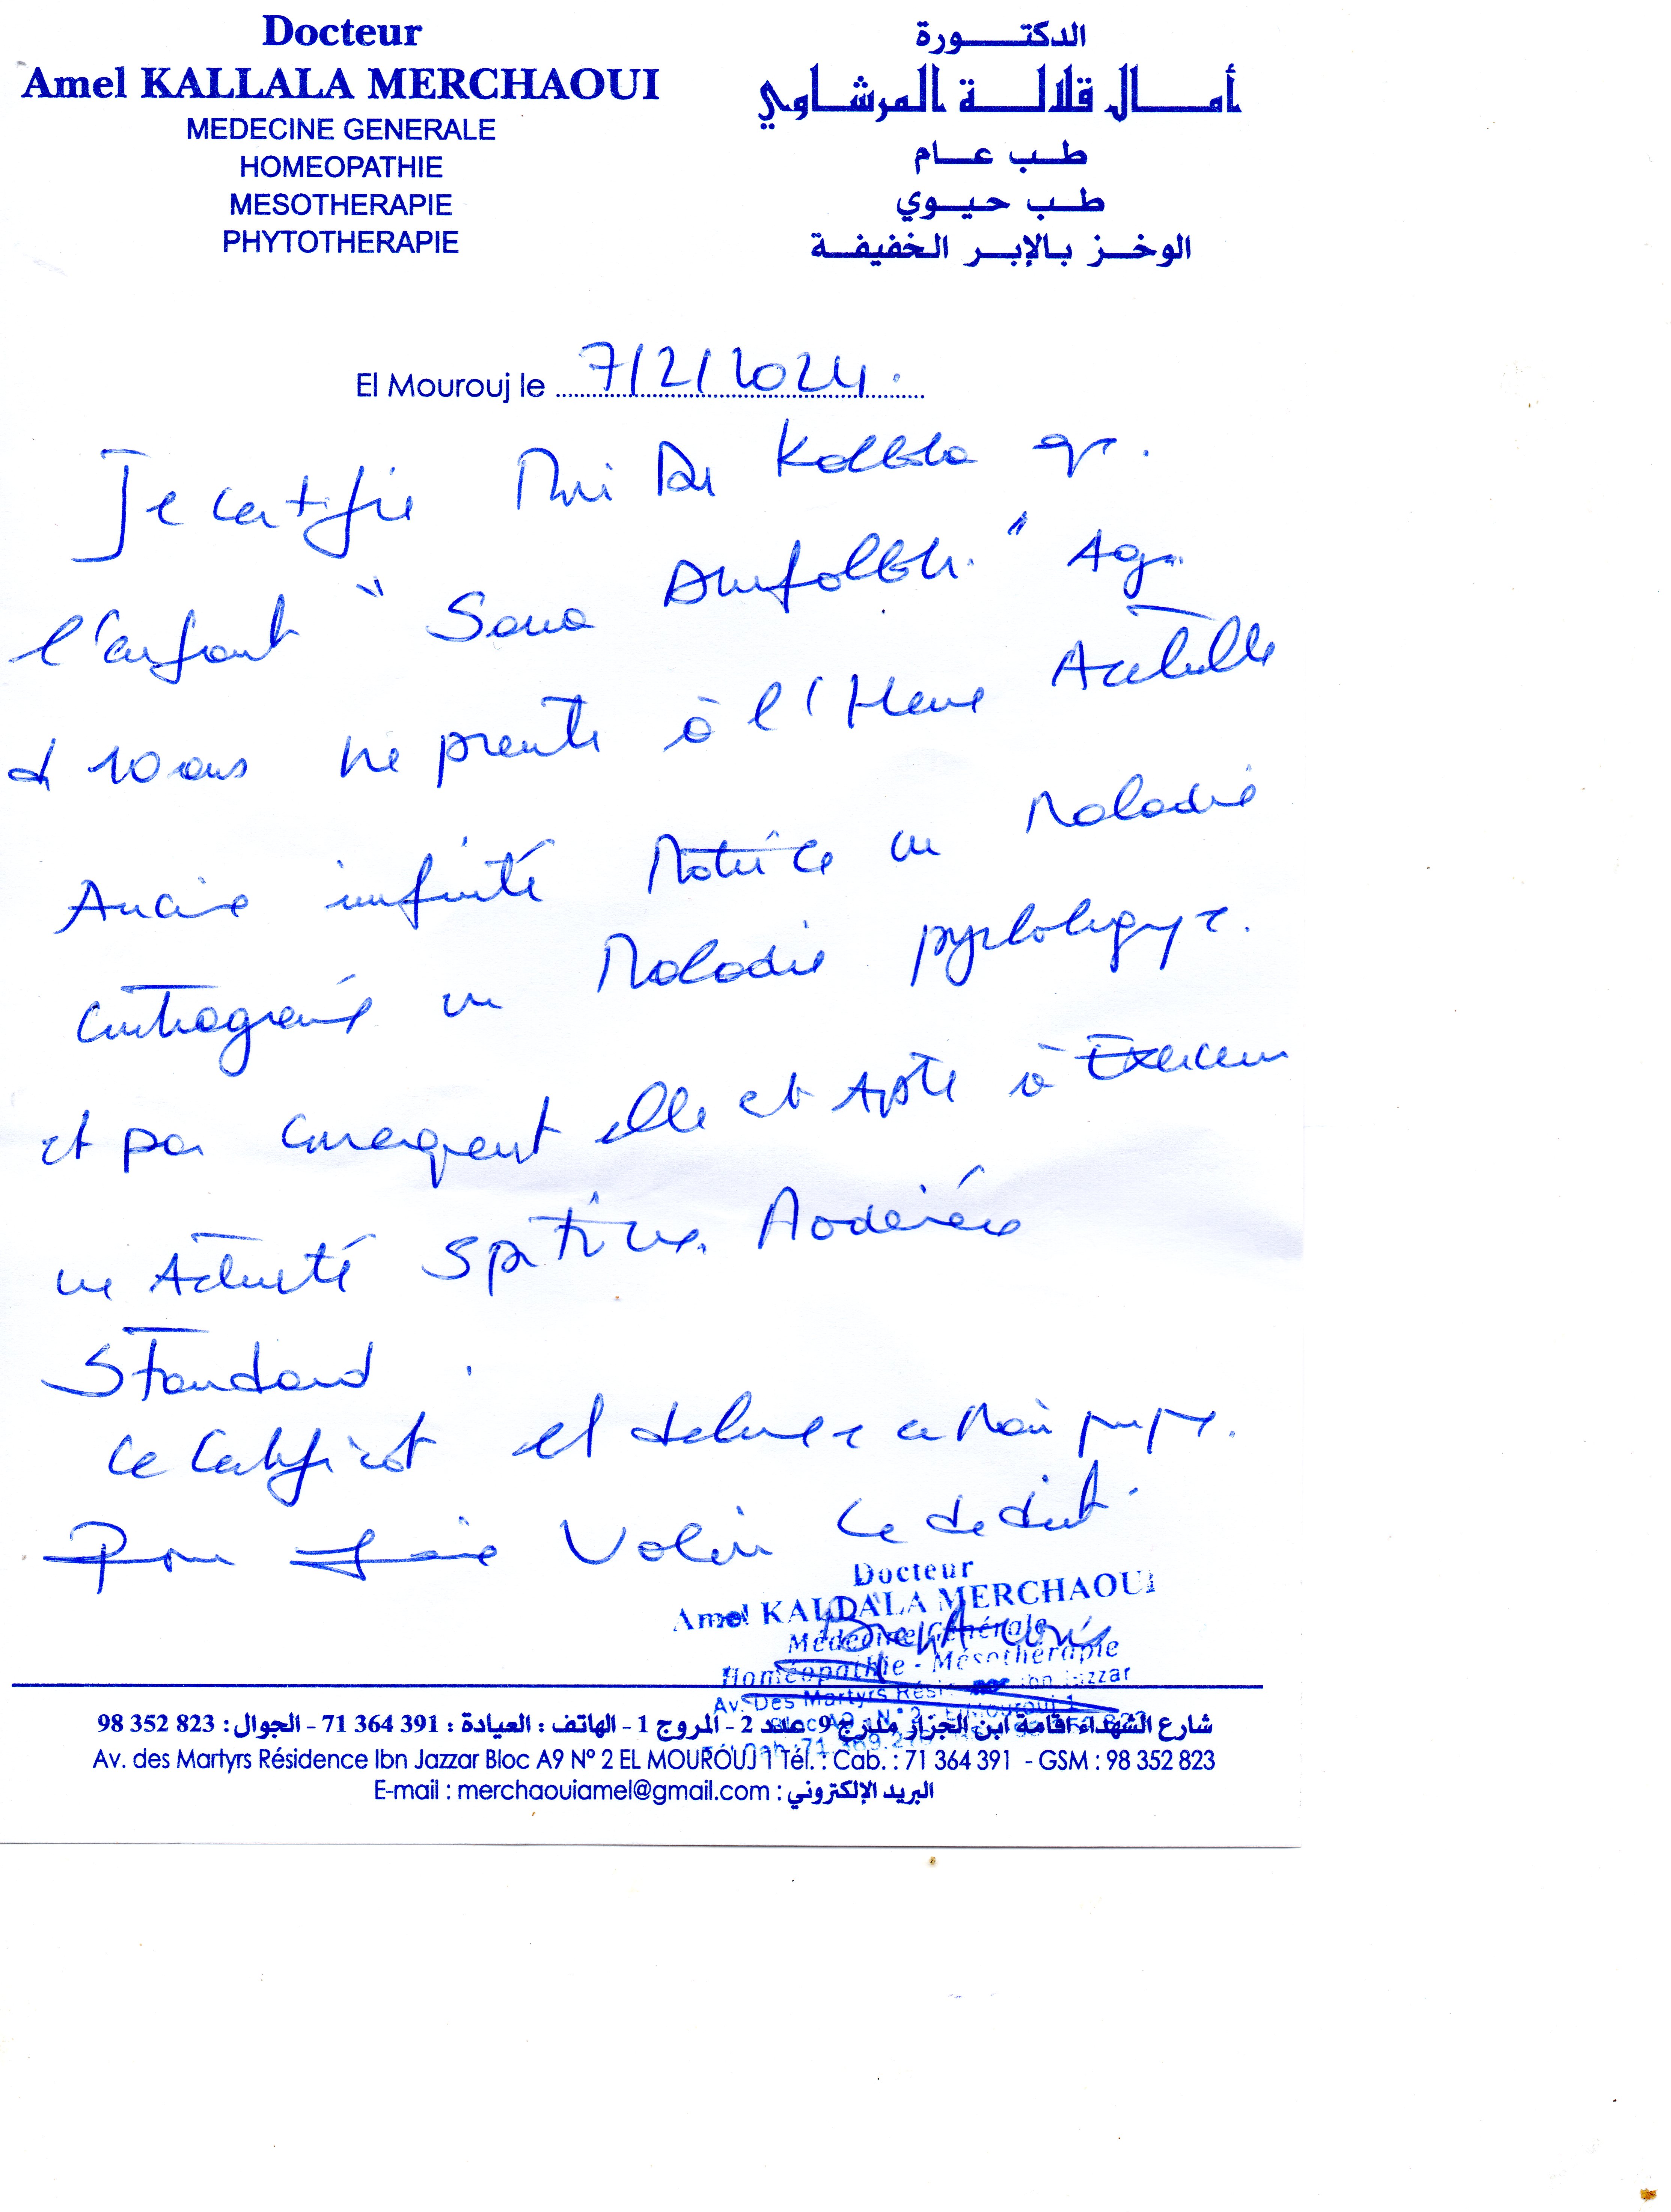 Docteur
Amel KALLALA MERCHAOUI
MEDECINE GENERALE
HOMEOPATHIE
MESOTHERAPIE
PHYTOTHERAPIE
الدكتورة
أمال قلالة المرشاوي
طب عام
طب حيوي
الوخز بالإبر الخفيفة
El Mourouj le 7/2/2024.
Je certifie Moi Dr Kallala que
l'enfant " Sana " Agée
d 10 ans ne présente à l'Heure Actuelle
Aucune infirmité Motrice ou Maladie
contagieuse ou Maladie psychologique.
et par conséquent elle est Apte à Exercer
une Activité Sportive Modérée
Standard.
Ce Certificat est délivré en Main propre.
Pour faire Valoir Ce de droit.
Docteur
Amel KALLALA MERCHAOUI
Médecine Générale
Homéopathie - Mésothérapie
Av. Des Martyrs Rési Ibn Jazzar
شارع الشهداء اقامة ابن الجزار مدرج 9 عدد 2 - المروج 1 - الهاتف : العيادة : 71 364 391 - الجوال : 98 352 823
Av. des Martyrs Résidence Ibn Jazzar Bloc A9 N° 2 EL MOUROUJ 1 Tél. : Cab. : 71 364 391 - GSM : 98 352 823
E-mail : merchaouiamel@gmail.com : البريد الإلكتروني